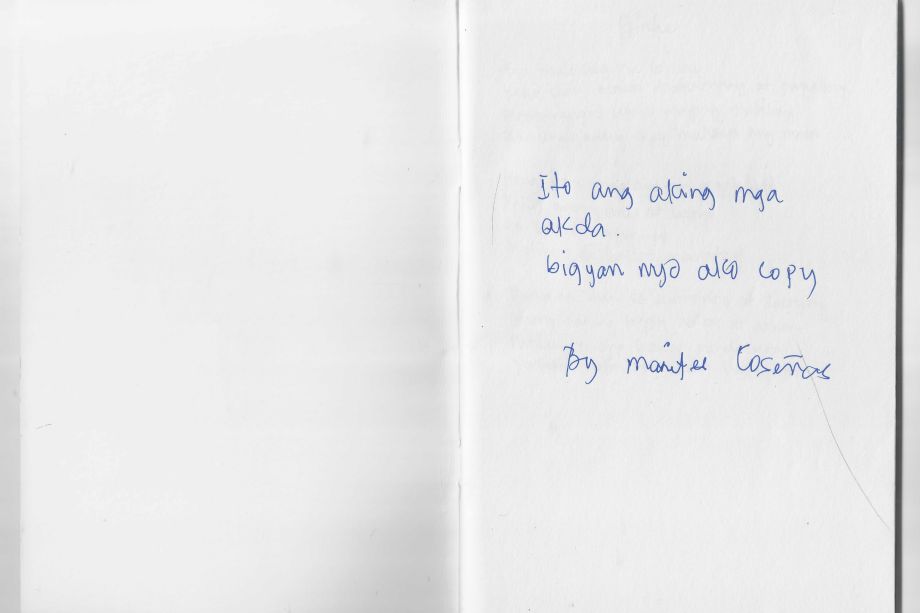 Ito ang aking mga
akda.
bigyan nyo ako copy
By maritес Coseñas